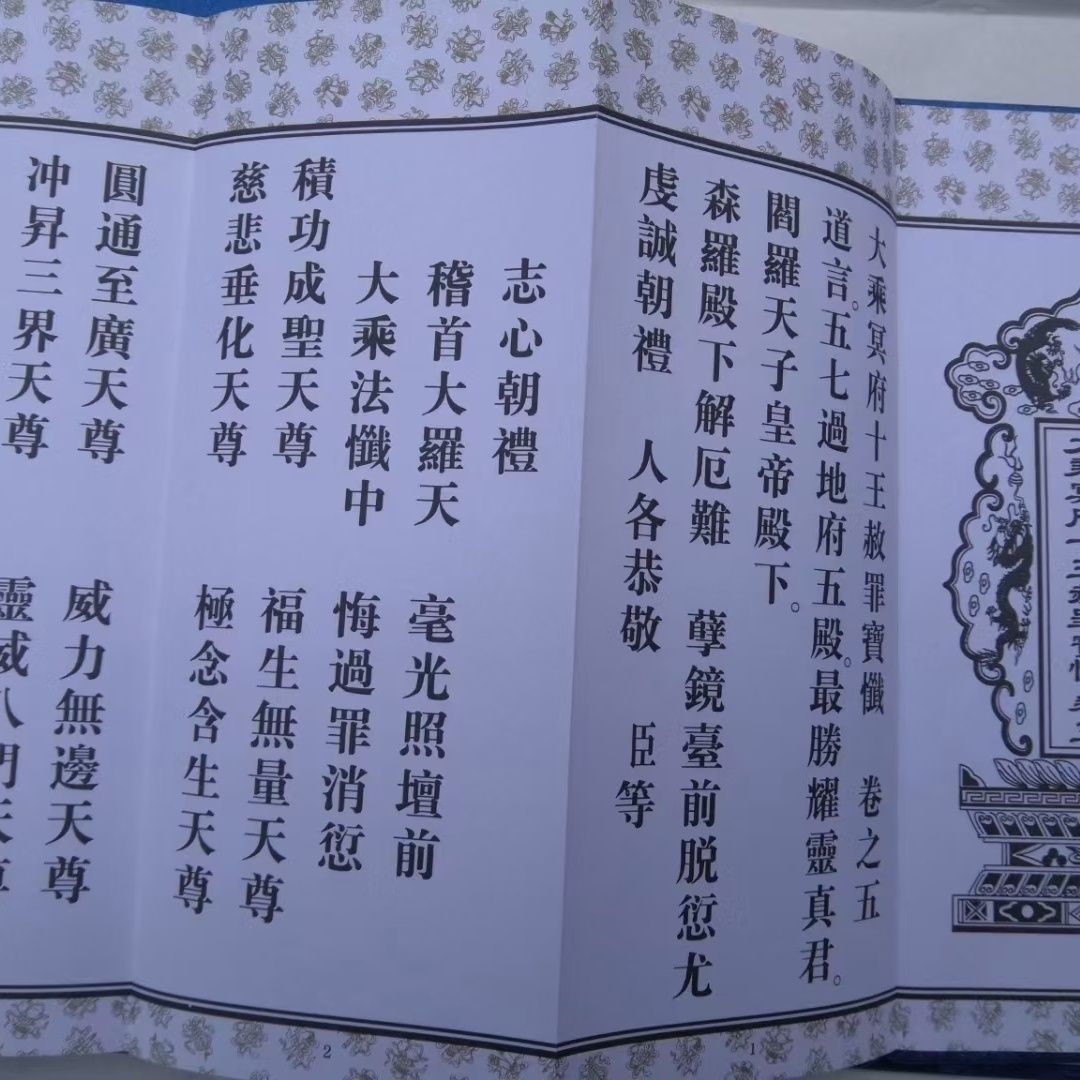 大乘冥府十王赦罪寶懺　卷之五
道言。五七過地府五殿。最勝耀靈真君。
閻羅天子皇帝殿下。
森羅殿下解厄難　孽鏡臺前脱愆尤
虔誠朝禮　人各恭敬　臣等
1
志心朝禮
稽首大羅天　毫光照壇前
大乘法懺中　悔過罪消愆
積功成聖天尊　福生無量天尊
慈悲垂化天尊　極念含生天尊
2
圓通至廣天尊　威力無邊天尊
冲昇三界天尊　靈威八門天尊